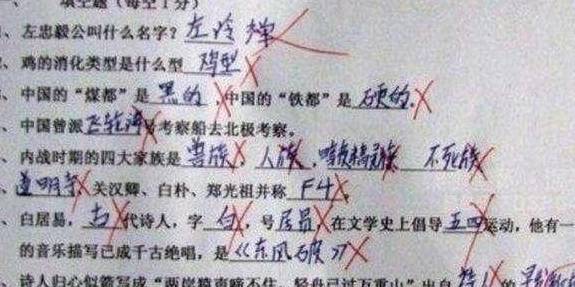 一、填空题（每空1分）
、左忠毅公叫什么名字？左冷禅
、鸡的消化类型是什么型 鸡型
、中国的“煤都”是 黑的 ，中国的“铁都”是 硬的。
、中国曾派飞轮海号考察船去北极考察。
、内战时期的四大家族是 兽族、人族、暗夜精灵族 不死族
、道明寺、关汉卿、白朴、郑光祖并称 F4。
、白居易，古代诗人，字 白，号居易，在文学史上倡导五四运动，他有一
的音乐描写已成千古绝唱，是《东风破》
、诗人归心似箭写成“两岸猿声啼不住，轻舟已过万重山”出自 的